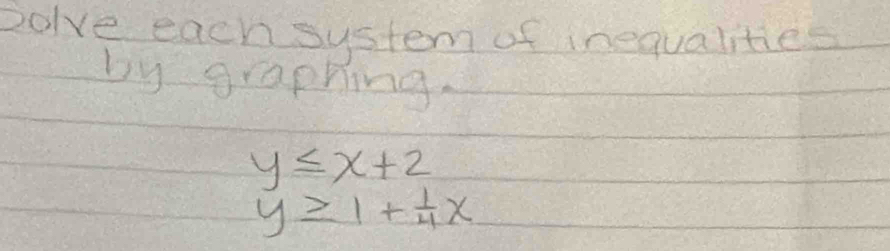 Solve each system of inequalities
by graphing.
y ≤ x + 2
y ≥ 1 + 1/4 x